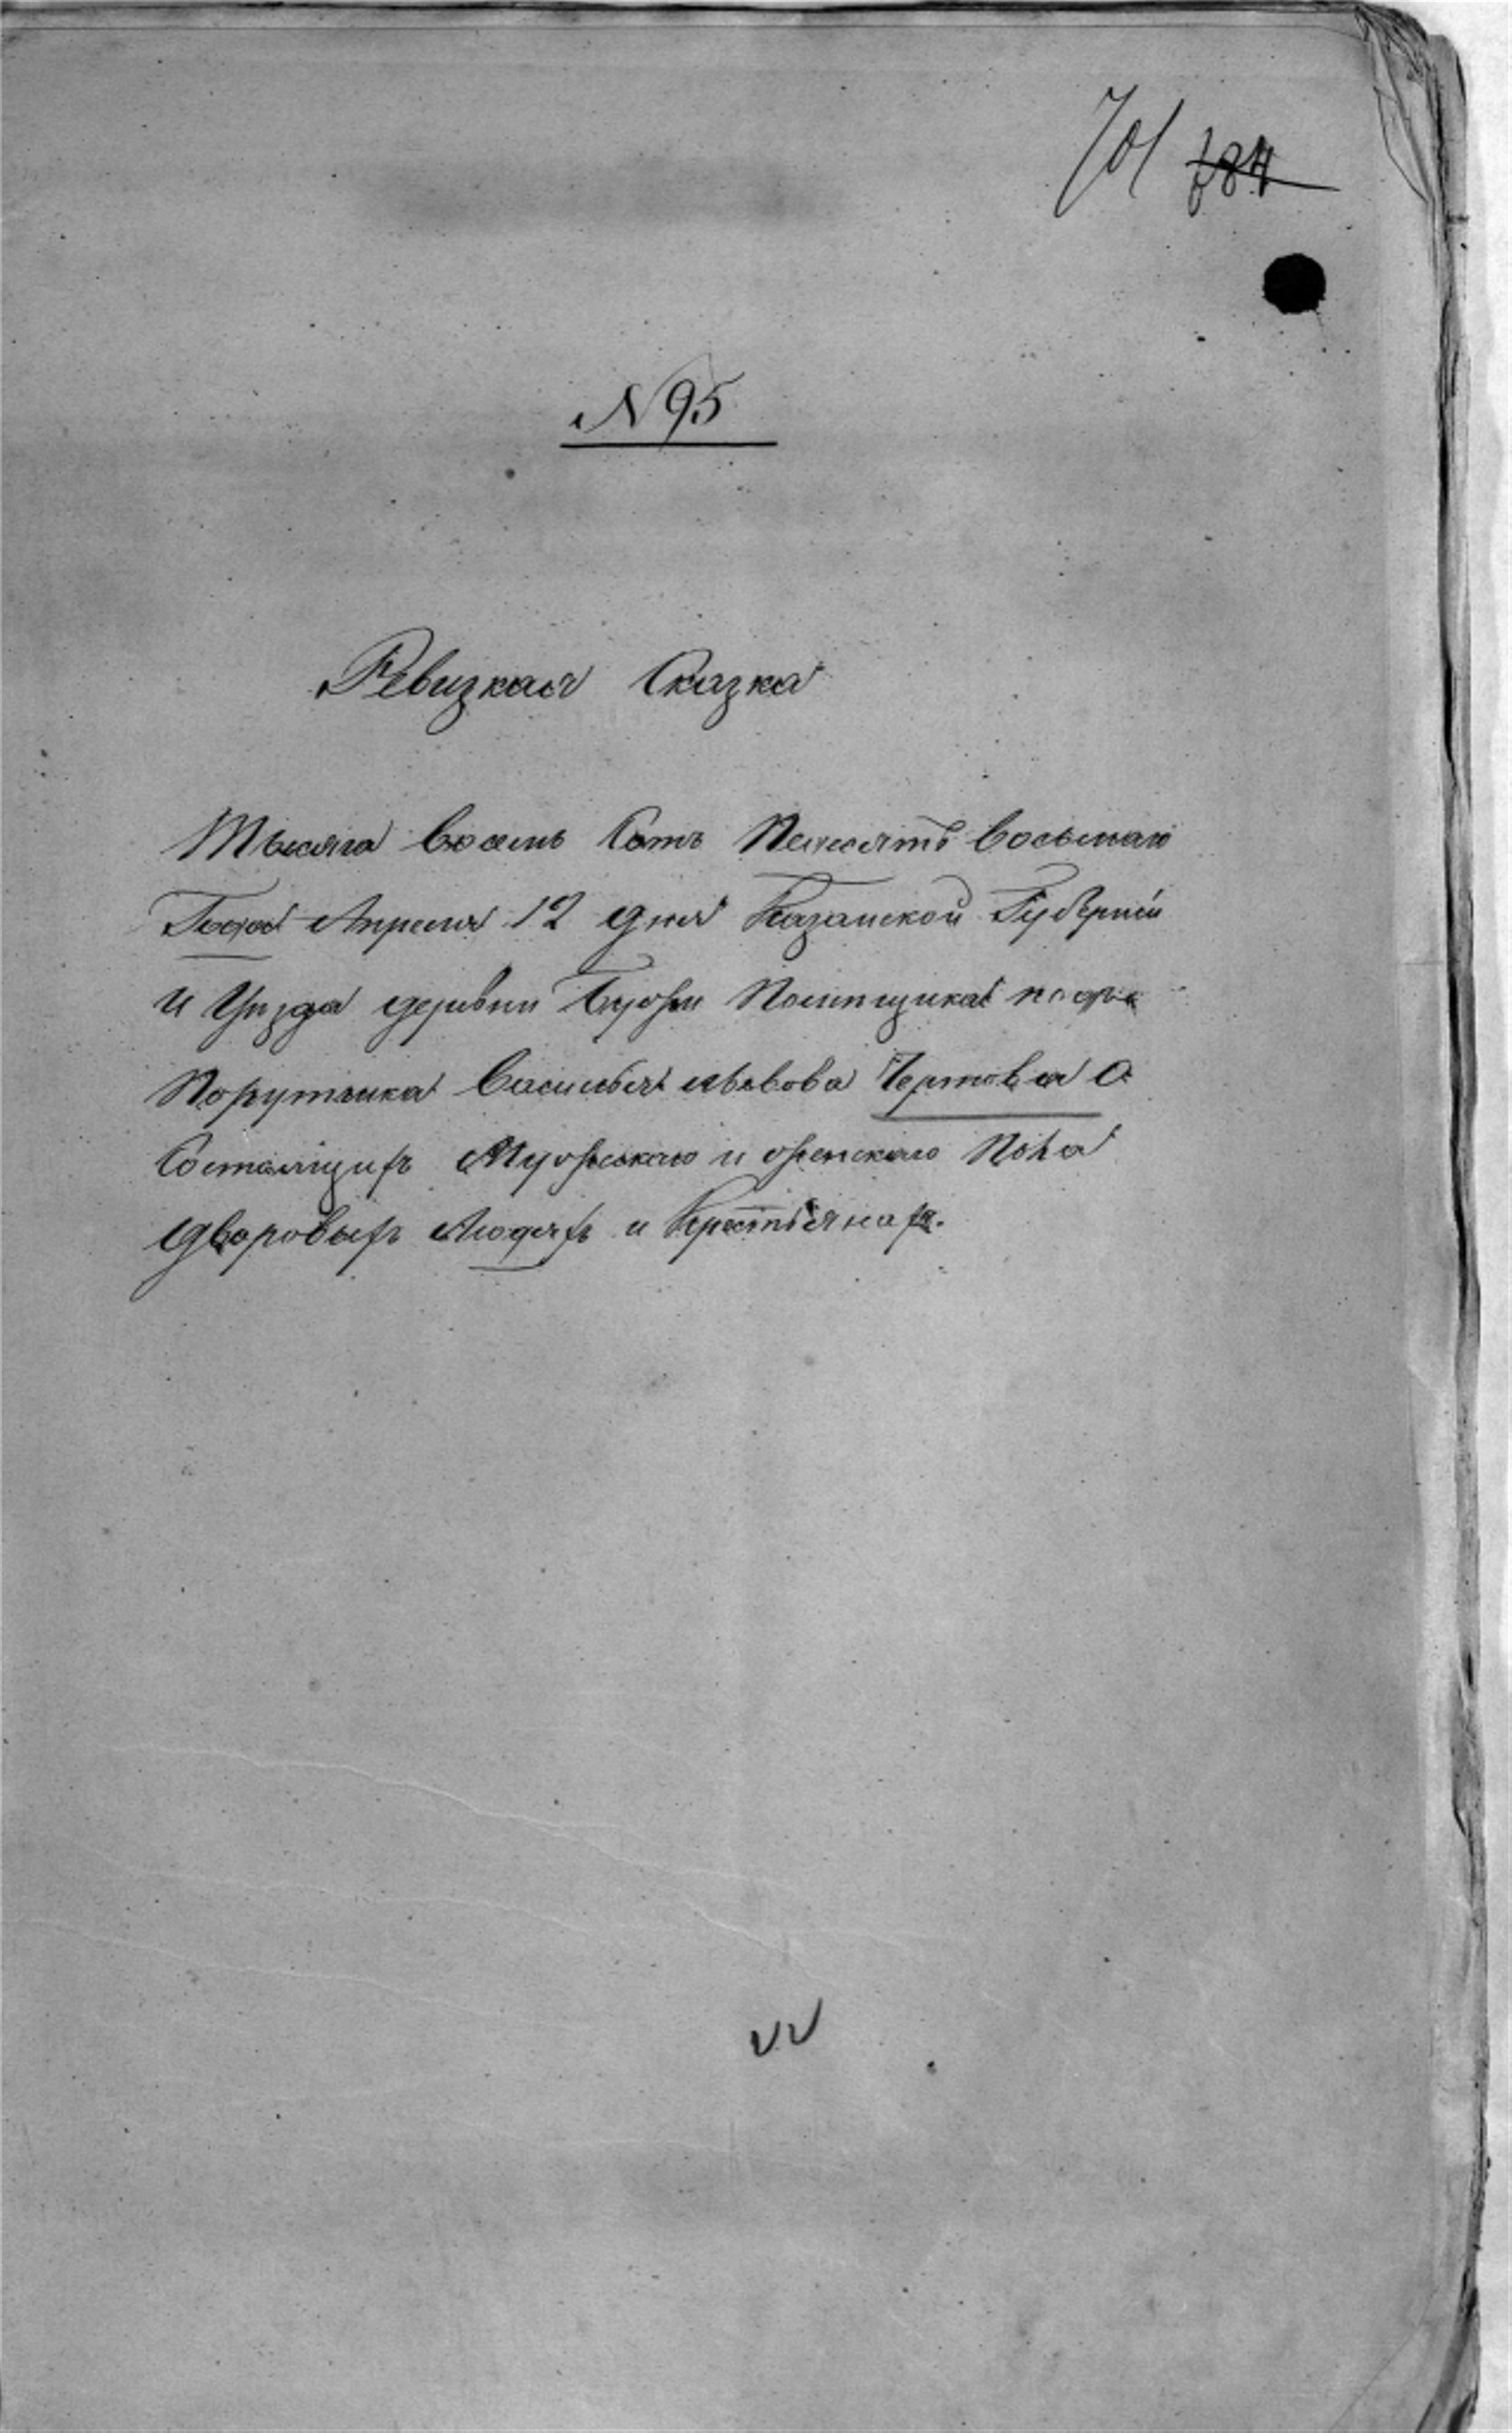 701 684
N 95
Ревизкая Сказка
Тысяча восемь Сотъ Пенесятъ Восьмаго
Года Апреля 12 дня Казанской Губерніи
и Уизда деривни Помищика
Порутчика Василья Львова Чертова О
Состоящихъ Мужескаго и женскаго Пола
дворовыхъ Людяхъ и Крестьянахъ.